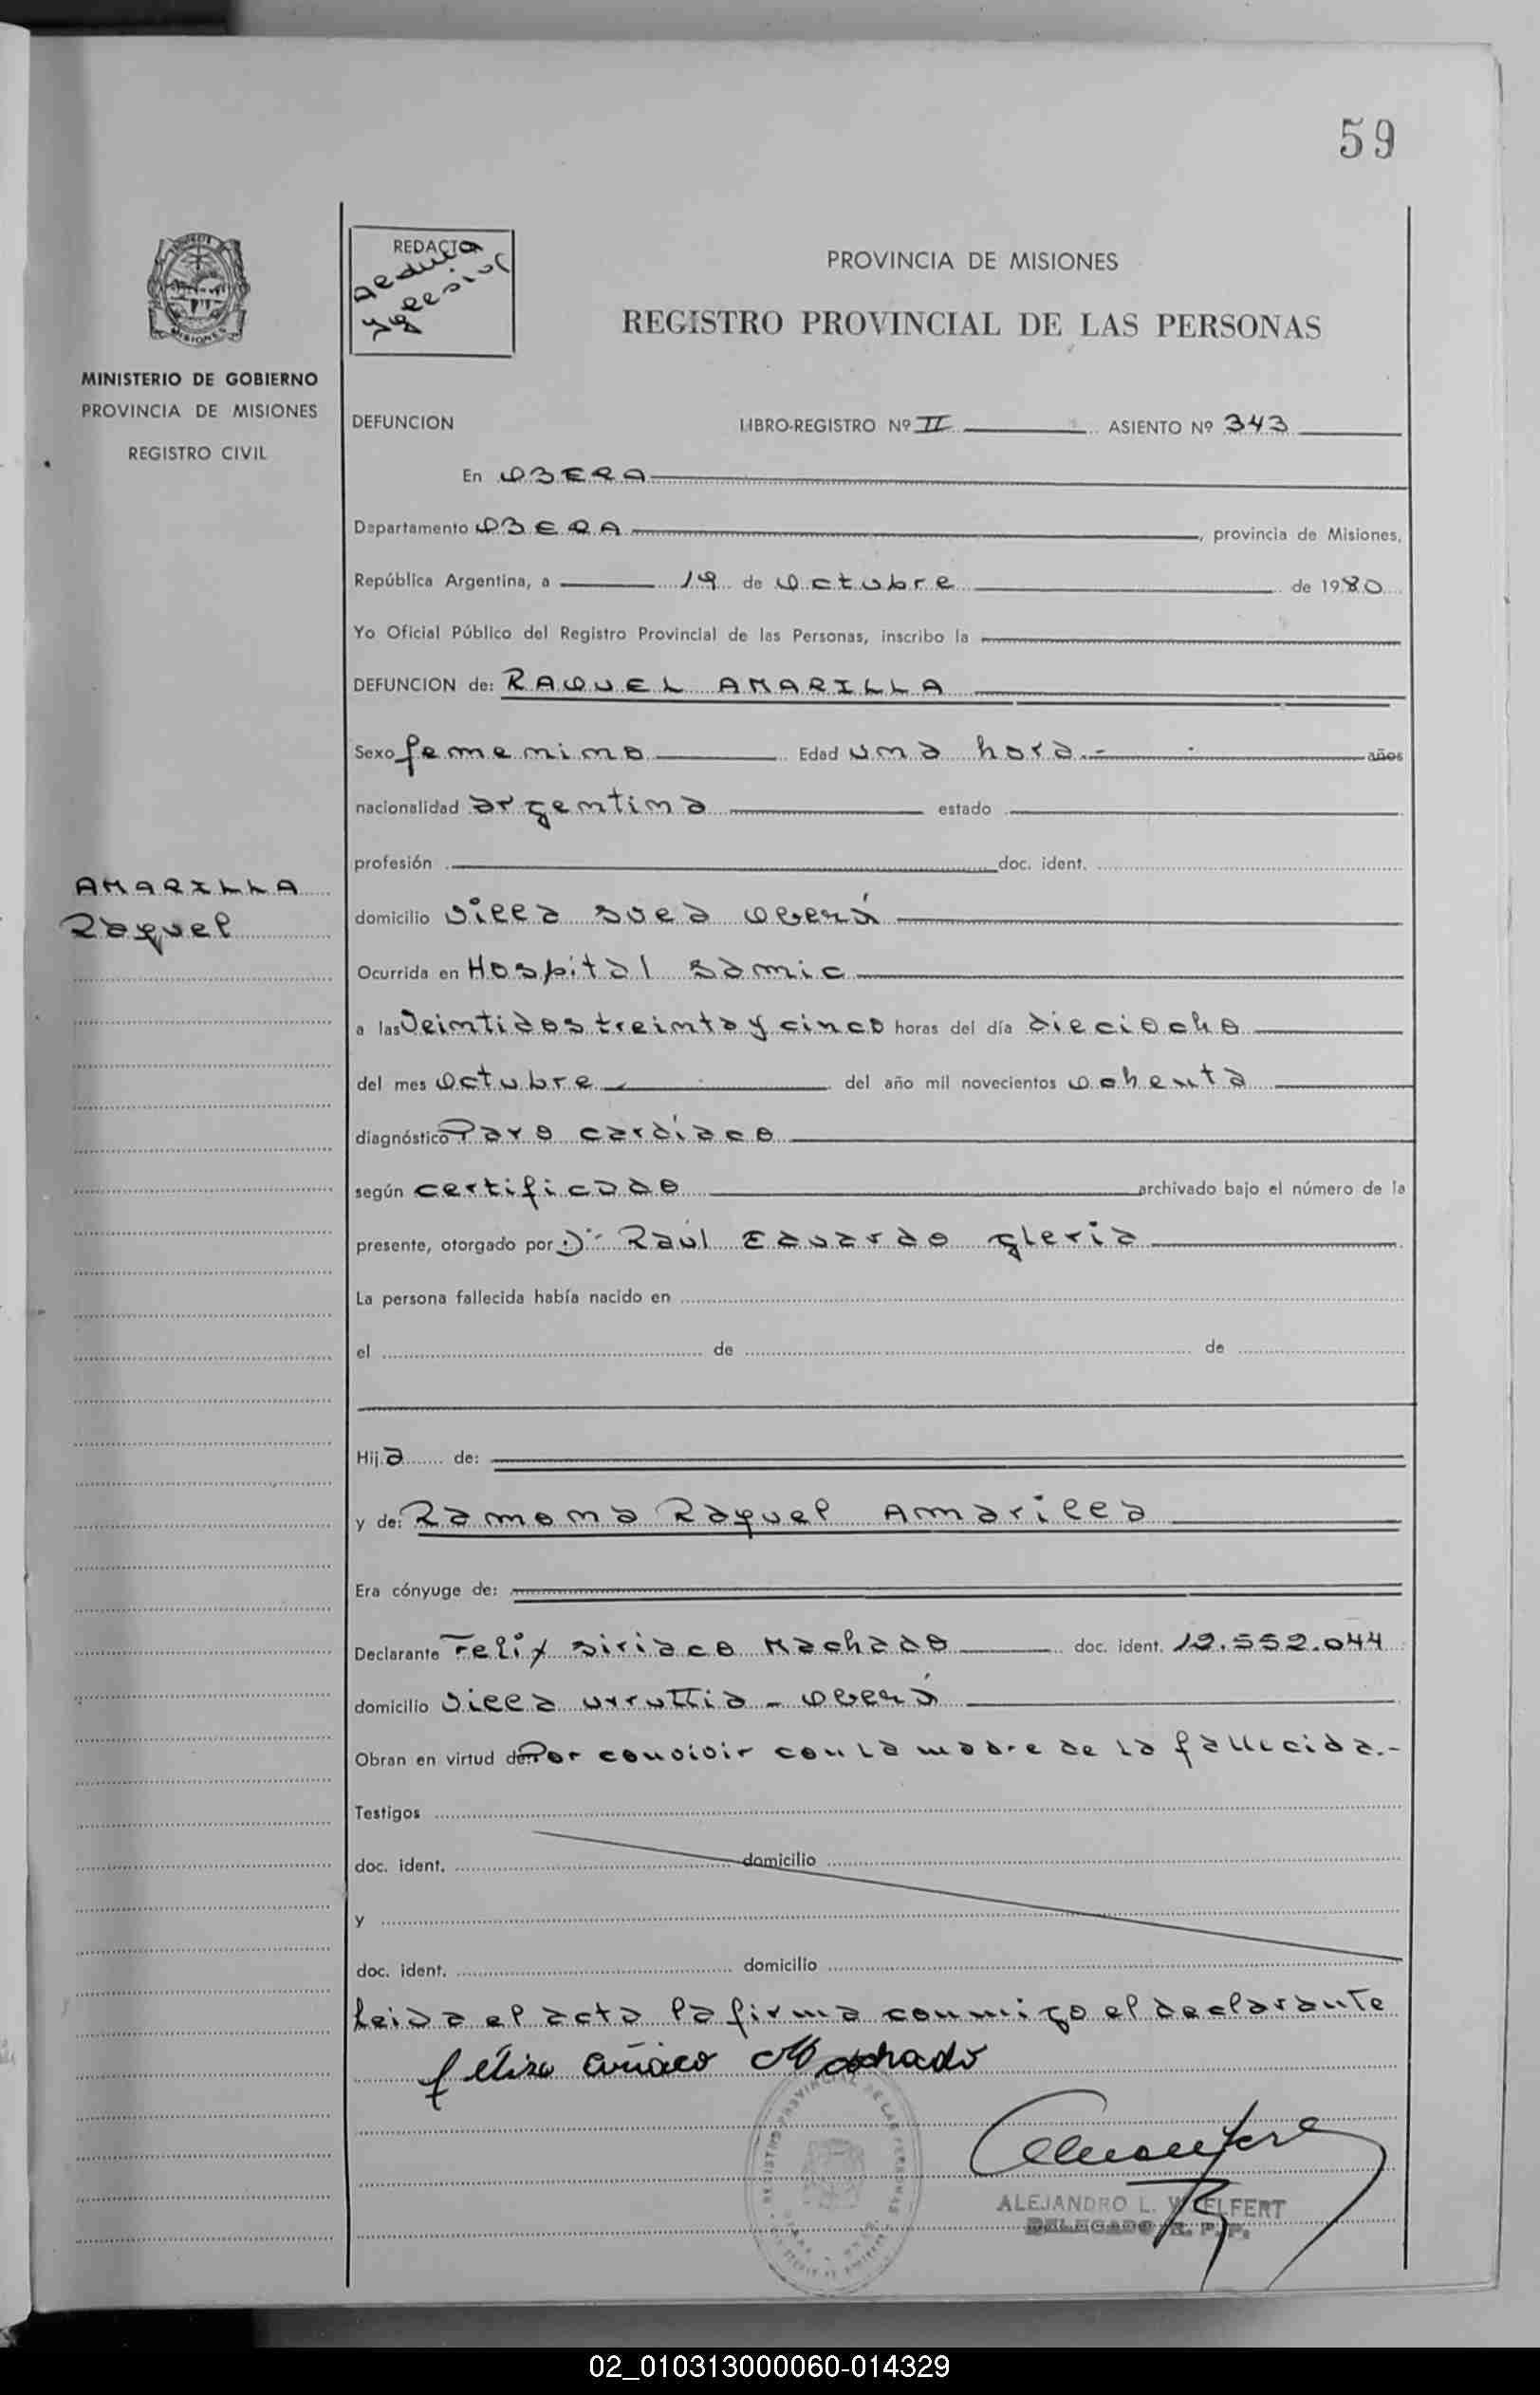 59
MINISTERIO DE GOBIERNO
PROVINCIA DE MISIONES
REGISTRO CIVIL
AMARILLA
Raquel
REDACTOR
PROVINCIA DE MISIONES
REGISTRO PROVINCIAL DE LAS PERSONAS
DEFUNCION LIBRO-REGISTRO Nº II ASIENTO Nº 343
En OBERA
Departamento OBERA, provincia de Misiones,
República Argentina, a 19 de octubre de 1980
Yo Oficial Público del Registro Provincial de las Personas, inscribo la
DEFUNCION de: RAQUEL AMARILLA
Sexo femenino Edad una hora.- años
nacionalidad argentina estado
profesión doc. ident.
domicilio Villa Svea Oberá
Ocurrida en Hospital Samic
a las Veintidos treinta y cinco horas del día dieciocho
del mes octubre del año mil novecientos ochenta
diagnóstico Paro cardíaco
según certificado archivado bajo el número de la
presente, otorgado por Dr Raúl Eduardo Gleria
La persona fallecida había nacido en
el de de
Hija de:
y de: Ramona Raquel Amarilla
Era cónyuge de:
Declarante Felix Siriaco Machado doc. ident. 12.552.044
domicilio Villa Urruttia - Oberá
Obran en virtud de Por convivir con la madre de la fallecida.-
Testigos
doc. ident. domicilio
y
doc. ident. domicilio
Leida el acta la firma conmigo el declarante
Machado
REGISTRO PROVINCIAL DE LAS PERSONAS
ALEJANDRO L. WELFERT
DELEGADO R. P. P.
02_010313000060-014329